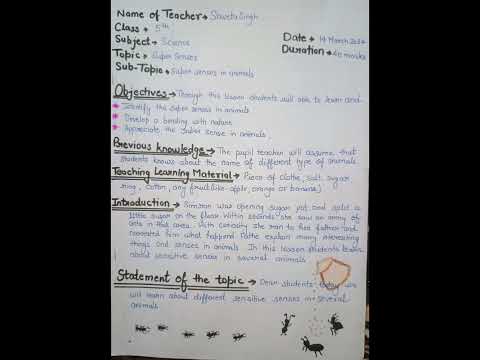 Name of Teacher → Shweta Singh
Class → 5th
Date → 14 March 2024
Subject → Science
Duration → 40 minutes
Topic → Super Senses
Sub-Topic → Super senses in animals
Objectives → Through this lesson students will able to learn and-
Identify the super senses in animals
Develop a bonding with nature
Appreciate the super sense in animals.
Previous knowledge → The pupil teacher will assume that
students knows about the name of different type of animals
Teaching Learning Material → Piece of Clothe, Salt, sugar
ring, Cotton, any fruit like-apple, orange or banana)
Introduction → Simran was opening sugar pot and split a
little sugar on the floor. Within seconds she saw an army of
ants in this area. With curiosity she ran to her father and
narrated him what happend. Father explain many interesting
things and senses in animals. In this lesson students learn
about sensitive senses in several animals
Statement of the topic → Dear students today we
will learn about different sensitive senses in several
animals